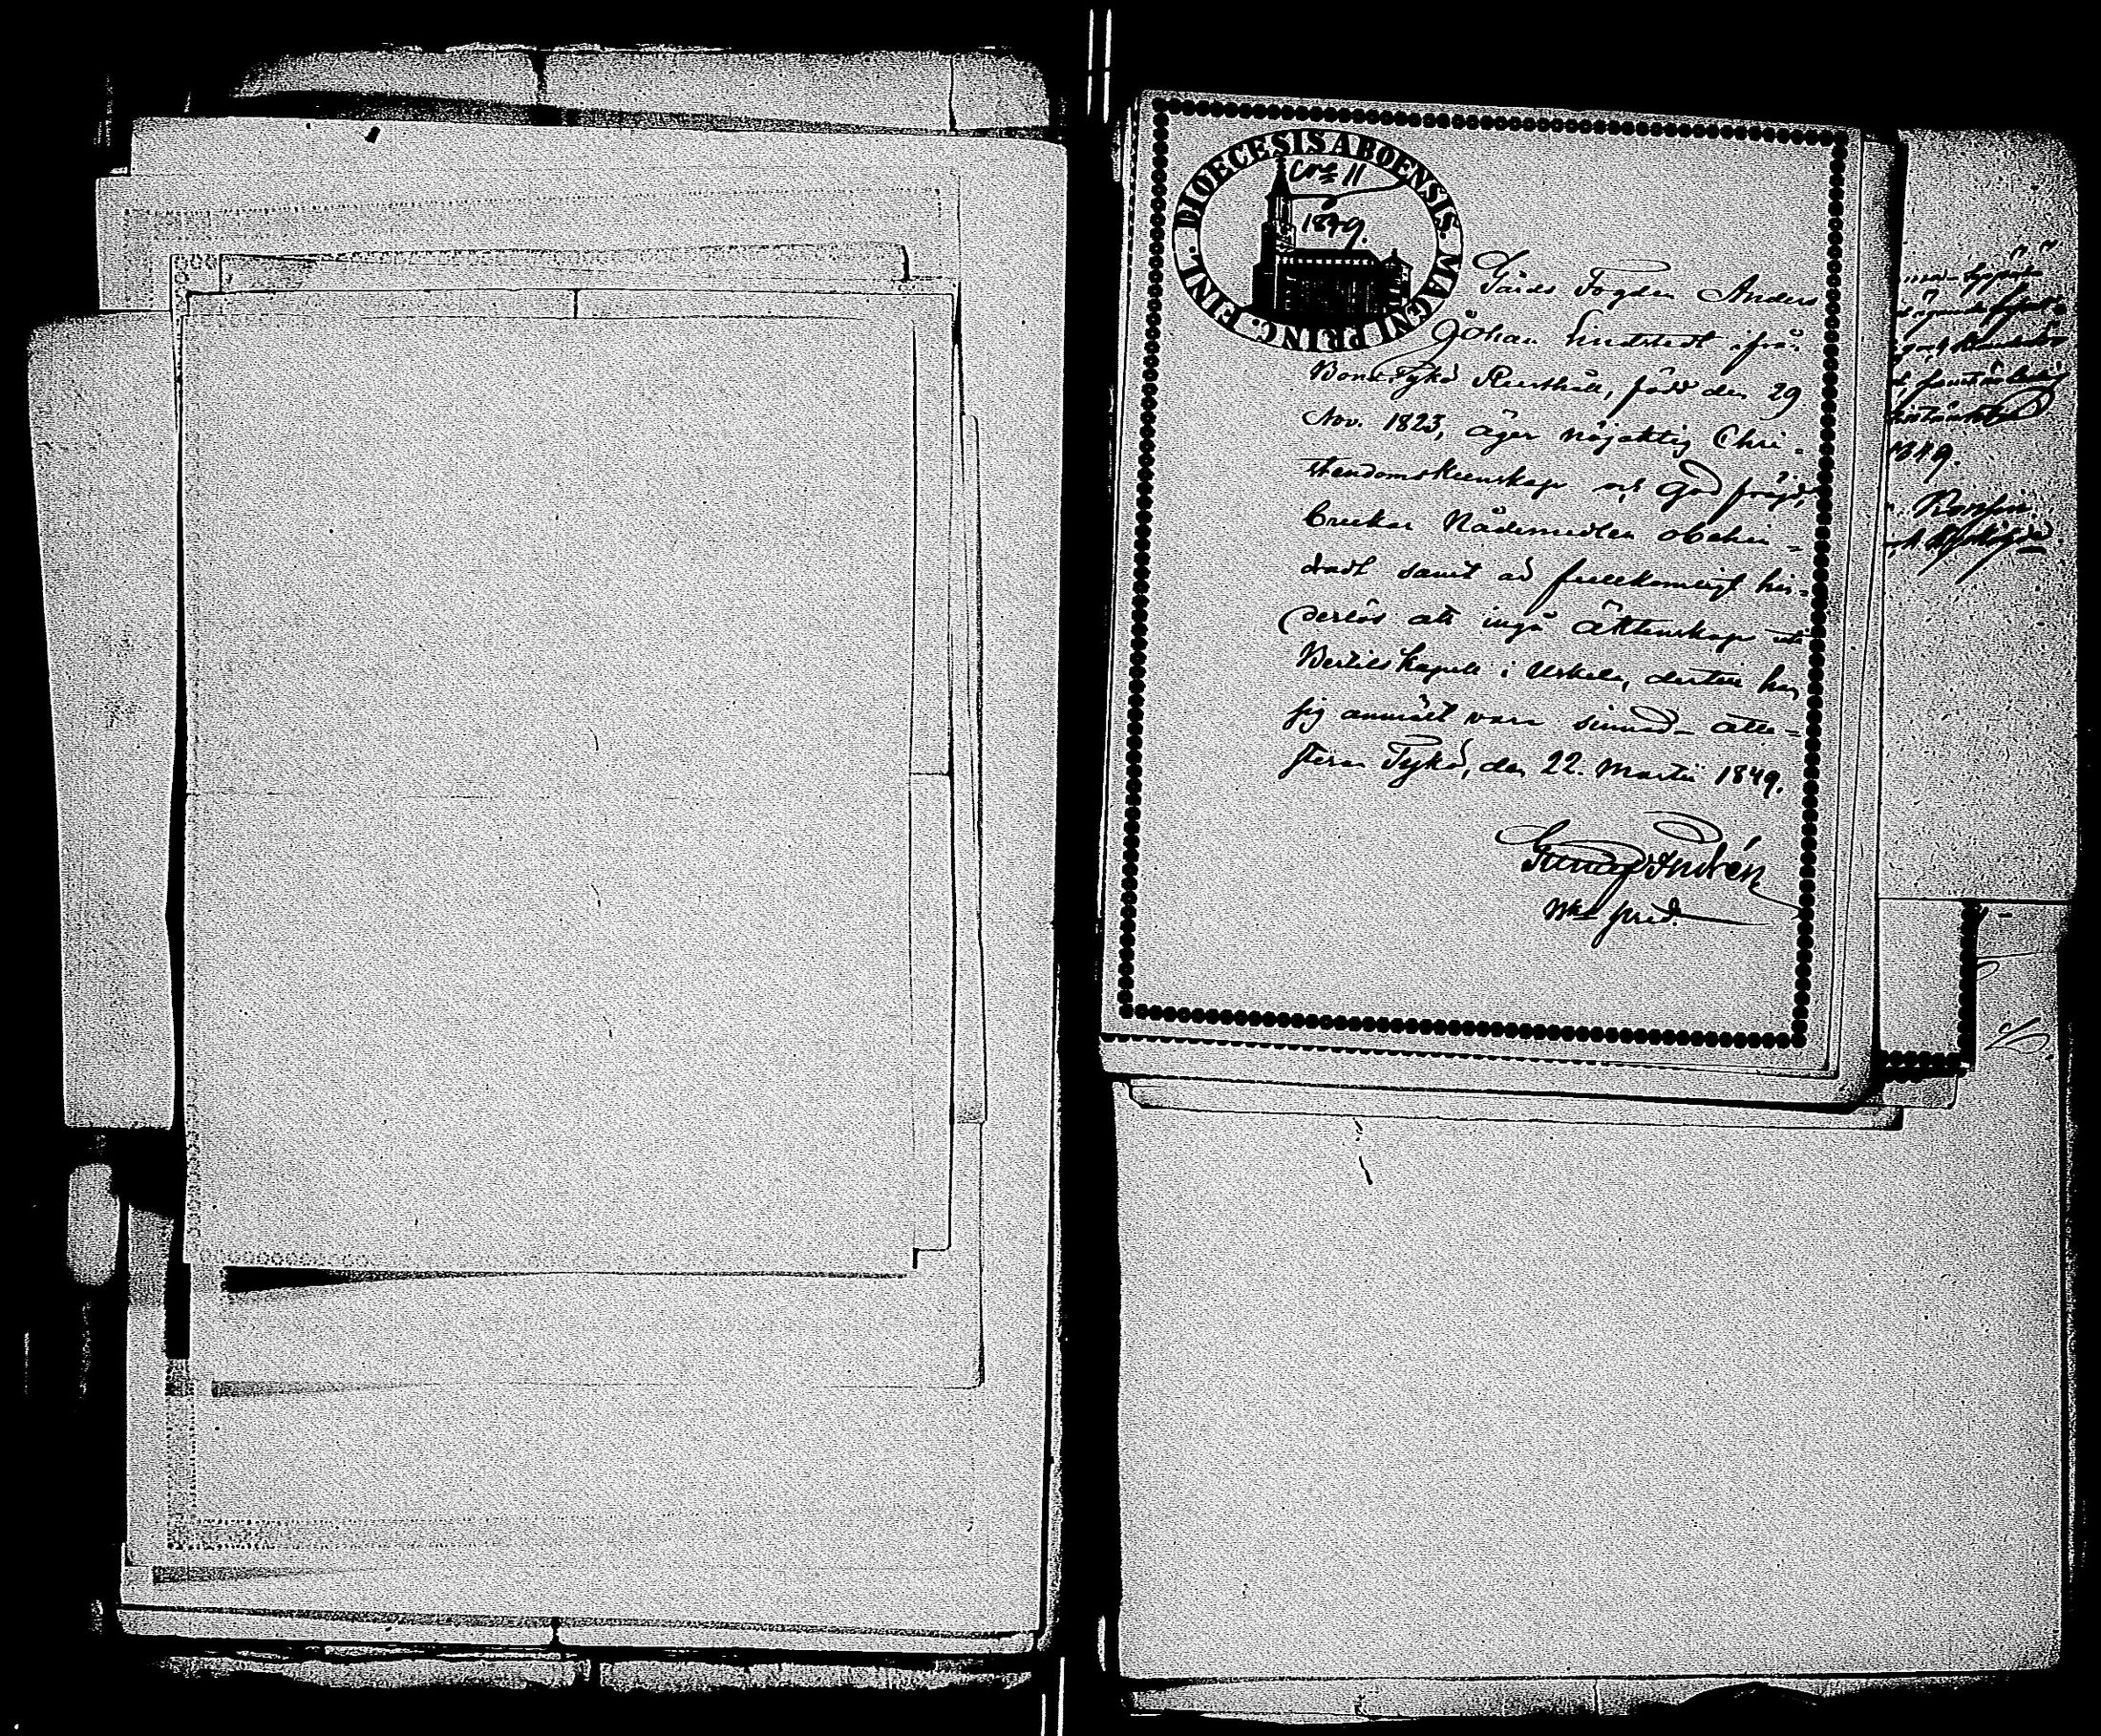 DIOECESIS ABOENSIS MAGNI PRINC. FINL.
11
1849.
Gårds Fogden Anders
Johan Lindstedt ifrån
Bonde Tykö Rusthåll, född den 29
Nov. 1823, äger nöjaktig Chri-
stendomskunskap och god frägd,
brukar Nådemedlen obehin-
dradt samt är fullkomligt hin-
derlös att ingå äktenskap uti
Bertils Kapell i Uskela, dertill han
sig anmält vara sinnad_ atte-
steras Tykö, den 22. Martii 1849.
Gustaf Andrén
pred.
1849.